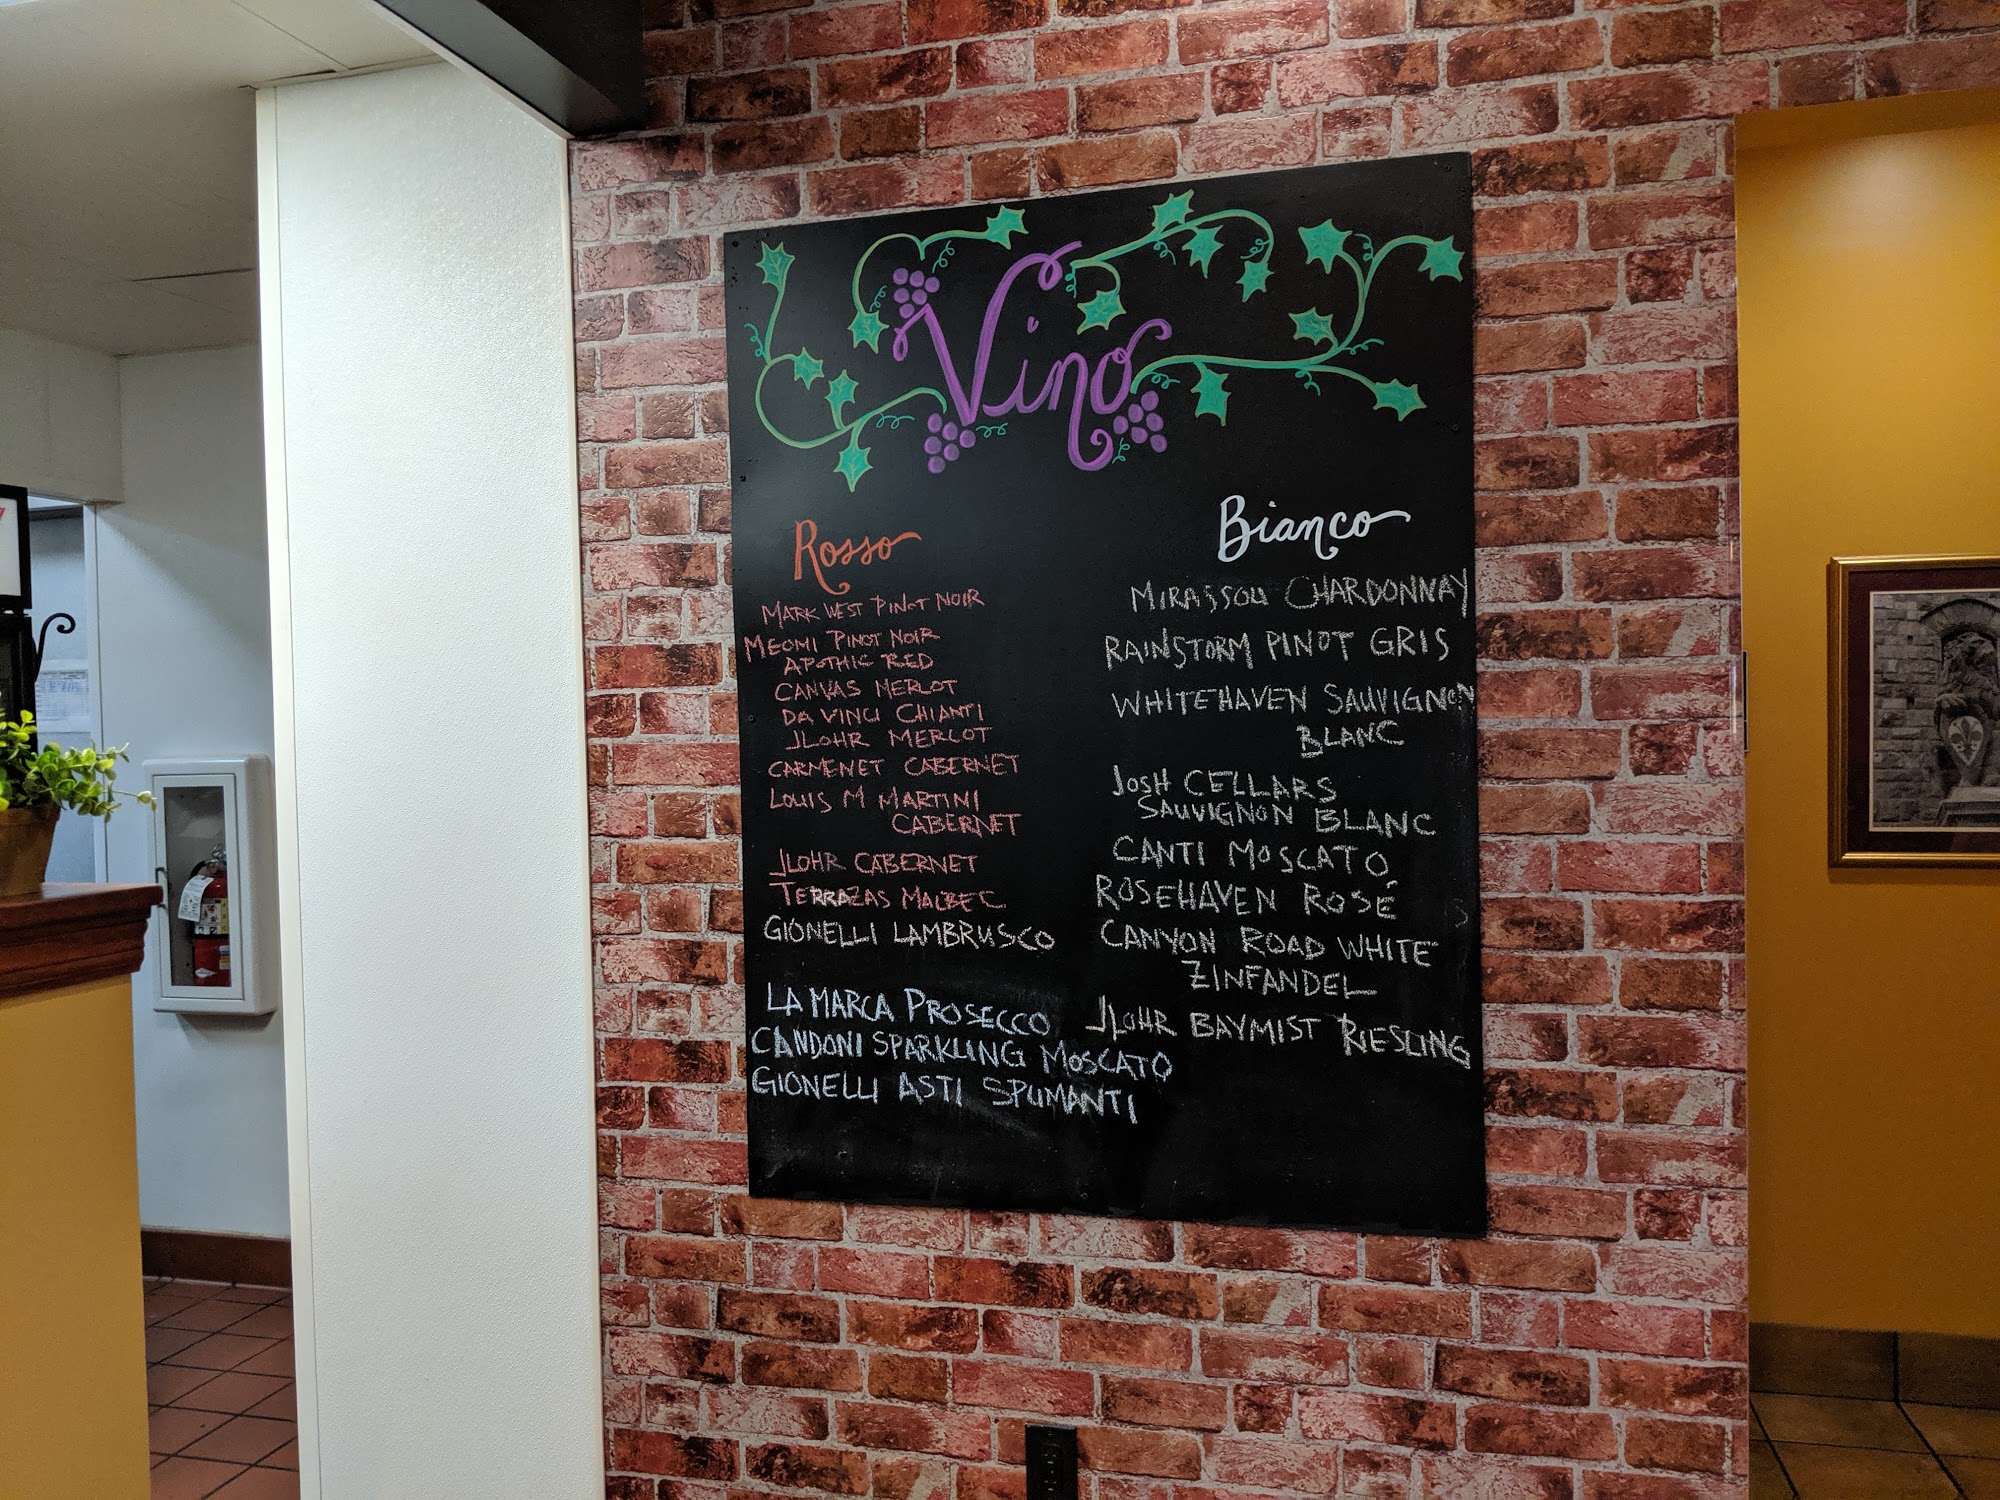 Vino
Rosso
MARK WEST PINOT NOIR
MEOMI PINOT NOIR
APOTHIC RED
CANVAS MERLOT
DA VINCI CHIANTI
JLOHR MERLOT
CARMENET CABERNET
LOUIS M MARTINI
CABERNET
JLOHR CABERNET
TERRAZAS MALBEC
GIONELLI LAMBRUSCO
LA MARCA PROSECCO
CANDONI SPARKLING MOSCATO
GIONELLI ASTI SPUMANTI
Bianco
MIRASSOU CHARDONNAY
RAINSTORM PINOT GRIS
WHITEHAVEN SAUVIGNON
BLANC
JOSH CELLARS
SAUVIGNON BLANC
CANTI MOSCATO
ROSEHAVEN ROSÉ
CANYON ROAD WHITE
ZINFANDEL
JLOHR BAYMIST RIESLING